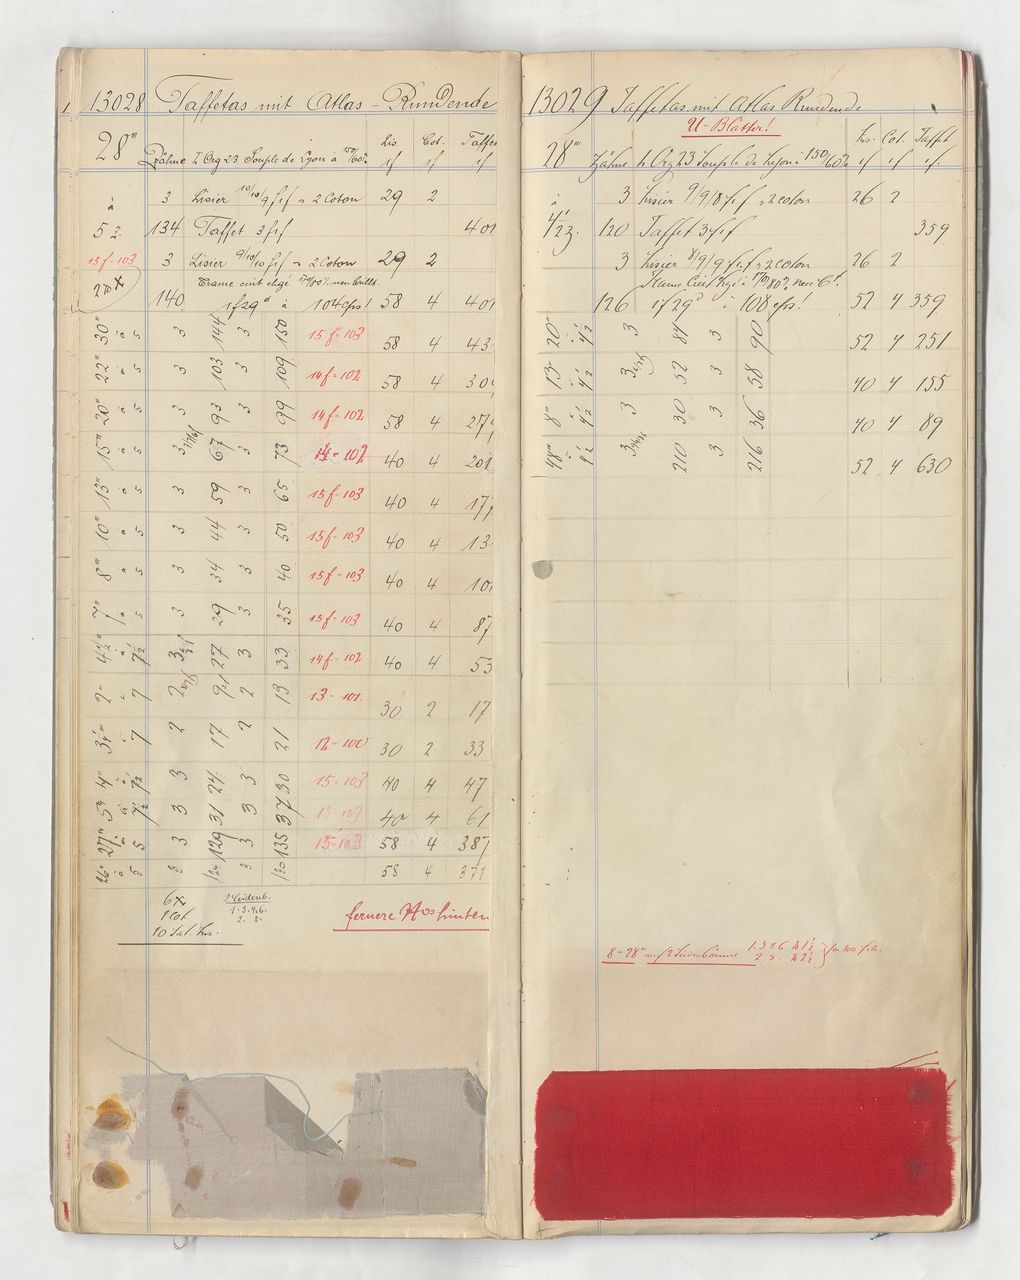 13028 Taffetas mit Atlas-Rundende
28'''
Zähne I Org 23 Souple de Lyon à 150/60%
Lis. Cot. Taffet
if if if
à 3 Lisier 10/10/9 fif = 2 Coton 29 2
5 z. 134 Taffet 3 fif 401
15 f = 103 3 Lisier 9/10/10 fif = 2 Coton 29 2
140 1f29d à 104 chs! 58 4 401
30''' à 5 3 144 3 150 15 f = 103 58 4 43
22''' à 5 3 103 3 109 14 f = 102 58 4 30
20''' à 5 3 93 3 99 14 f = 102 58 4 27
15''' à 5 3 67 3 73 14 = 102 40 4 201
13''' à 5 3 59 3 65 15 f = 103 40 4 17
10''' à 5 3 44 3 50 15 f = 103 40 4 13
8''' à 5 3 34 3 40 15 f = 103 40 4 10
7''' à 5 3 29 3 35 15 f = 103 40 4 87
4½''' à 7½ 3 27 3 33 14 f = 102 40 4 53
2''' à 7 2 9 2 13 13 = 101 30 2 17
3¼''' à 7 2 17 2 21 12 = 100 30 2 33
4''' à 7½ 3 24 3 30 15 = 103 40 4 47
5''' à 7½ 3 31 3 37 15 = 103 40 4 61
27''' à 5 3 129 3 135 15 = 103 58 4 387
26''' à 5 3 124 3 130 58 4 371
6x 2 Seidenb.
1 Cot 1. 3. 4. 6.
10 Sat. lis. 2. 5.
fernere Nos hinten
13029 Taffetas mit Atlas Rundende
U-Blätter!
28''' Zähne I Org 23 Souple de Lyon à 150/60%
lis. Cot. Taffet
if if if.
à 3 Lisier 9/9/8 fif = 2 coton 26 2
4½ z. 120 Taffet 3 fif 359
3 Lisier 8/9/9 fif = 2 coton 26 2
126 1f 29d à 108 chs! 52 4 359
20''' à 4½ 3 84 3 90 52 4 251
13''' à 4½ 3 52 3 58 40 4 155
8''' à 4½ 3 30 3 36 40 4 89
48''' à 4½ 3 210 3 216 52 4 630
8-28''' auf 2 Seidenbäume 1. 3. 4. 6 à 1½
2. 5. à 2½ } für 100 fils.